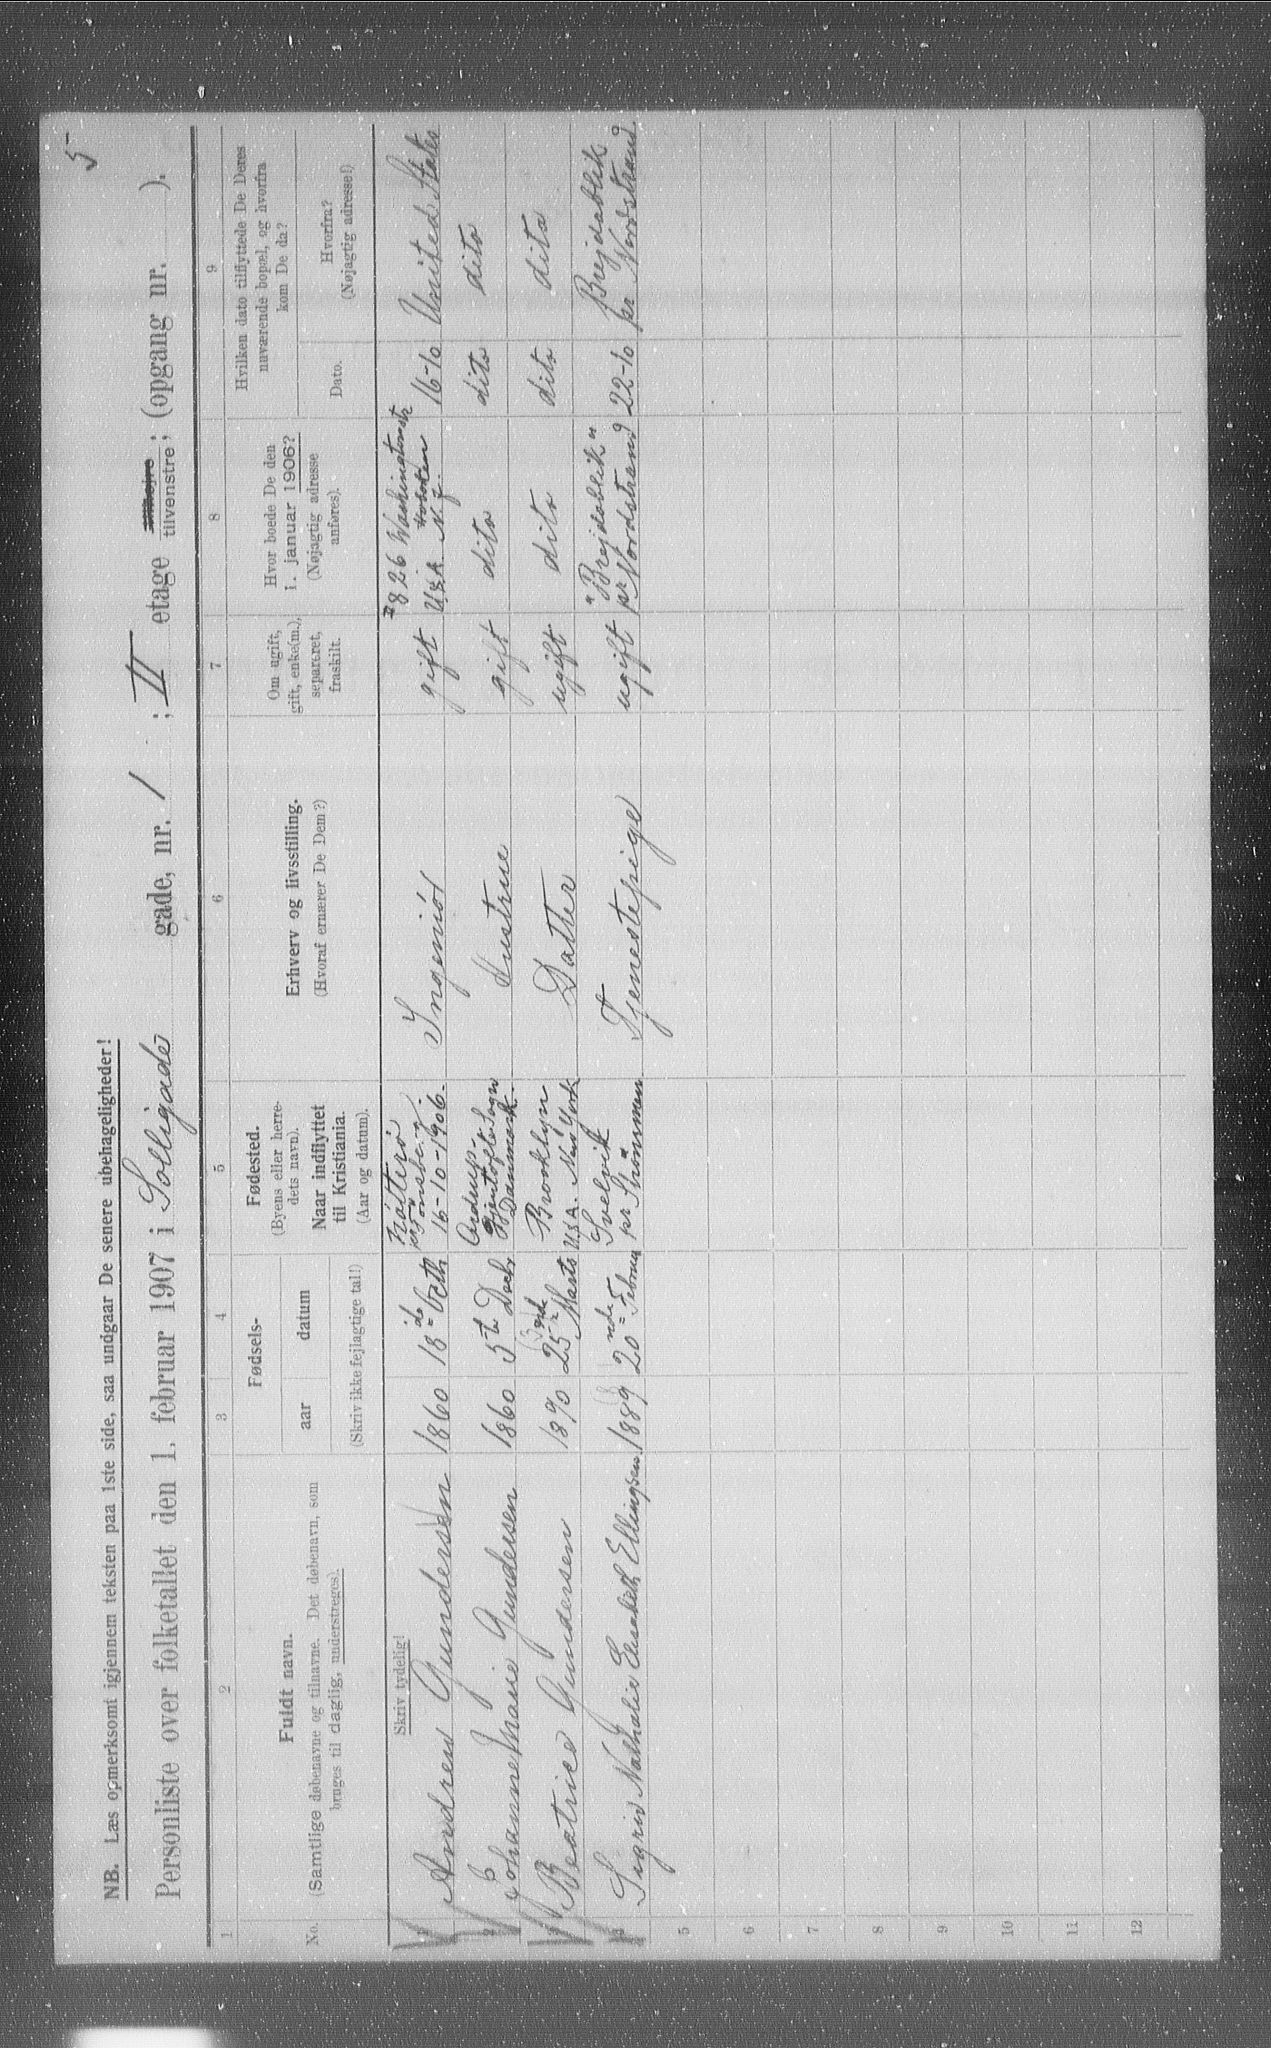 5
NB. Læs opmerksomt igjennem teksten paa 1ste side, saa undgaar De senere ubehageligheder!
Personliste over folketallet den 1. februar 1907 i Solligade gade, nr. 1 ; II etage tilvenstre; (opgang nr. ).
1 2 3 4 5 6 7 8 9
No.
Fuldt navn.
(Samtlige døbenavne og tilnavne. Det døbenavn, som
bruges til daglig, understreges).
Fødsels-
aar
datum
(Skriv ikke fejlagtige tal!)
Fødested.
(Byens eller herre-
dets navn).
Naar indflyttet
til Kristiania.
(Aar og datum).
Erhverv og livsstilling.
(Hvoraf ernærer De Dem?)
Om ugift,
gift, enke(m.),
separeret,
fraskilt.
Hvor boede De den
1. januar 1906?
(Nøjagtig adresse
anføres).
Hvilken dato tilflyttede De Deres
nuværende bopæl, og hvorfra
kom De da?
Dato.
Hvorfra?
(Nøjagtig adresse!)
Skriv tydelig!
1 Andrew Gundersen 1860 18 Octb Nötterö
pr Tönsberg.
16-10-1906. Ingeniör gift #826 Washingtonstr
Hoboken
U.S.A. N.J. 16-10 United States
2 Johanne Marie Gundersen 1860 5te Decbr Ordrup
Gjentofte Sogn
Danmark. Hustrue gift dito dito dito
3 Beatrice Gundersen 1890 25 Marts Brooklyn
U.S.A. New York Datter ugift dito dito dito
4 Sigrid Nathalie Elisabeth Ellingsen 1889 20nde Februar Svelvik
pr Strömmen Tjenestepige ugift "Brejdablik"
pr Nordstrand 22-10 Brejdablik
pr Nordstrand
5
6
7
8
9
10
11
12